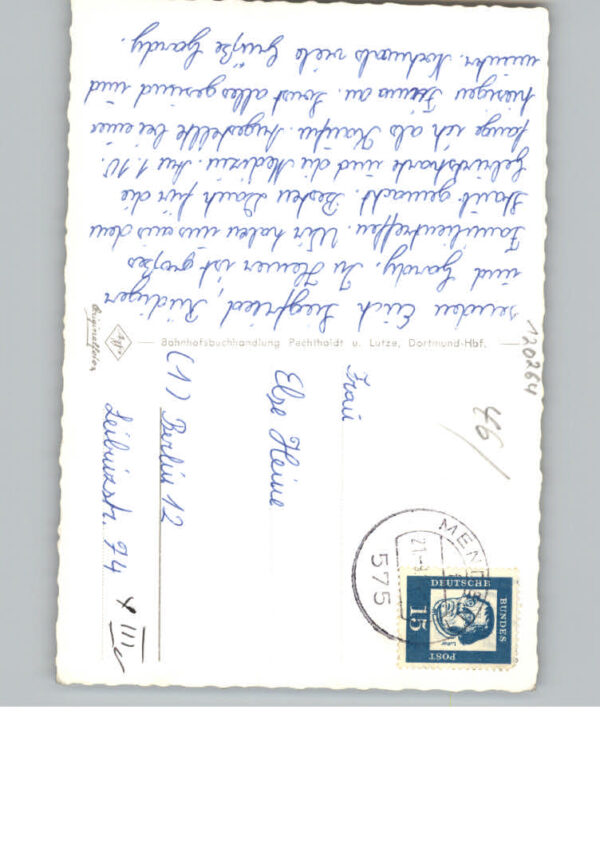 senden Euch Siegfried, Rüdiger
und Gardy. In Hemer ist großes
Familientreffen. Wir haben uns aus dem
Staub gemacht. Besten Dank für die
und die Medizin. Am 1.10.
fange ich als Kaufm. Angestellte bei einer
hiesigen Firma an. Sonst alles gesund und
munter. Nochmals viele Grüße Gardy.
Agfa
Originalfoto
Bahnhofsbuchhandlung Pechthaldt u. Lütze, Dortmund-Hbf.
120264
46/
Frau
Else Heine
(1) Berlin 12
Leibnizstr. 74
575
DEUTSCHE
BUNDES
POST
15
Luther